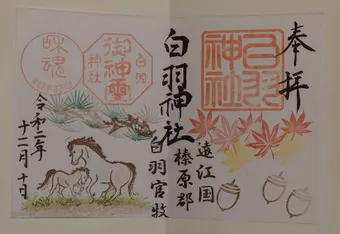 奉拝
白羽神社
遠江国
榛原郡
白羽神社
白羽官牧
白羽
神社
御神霊
令和二年
十二月十日